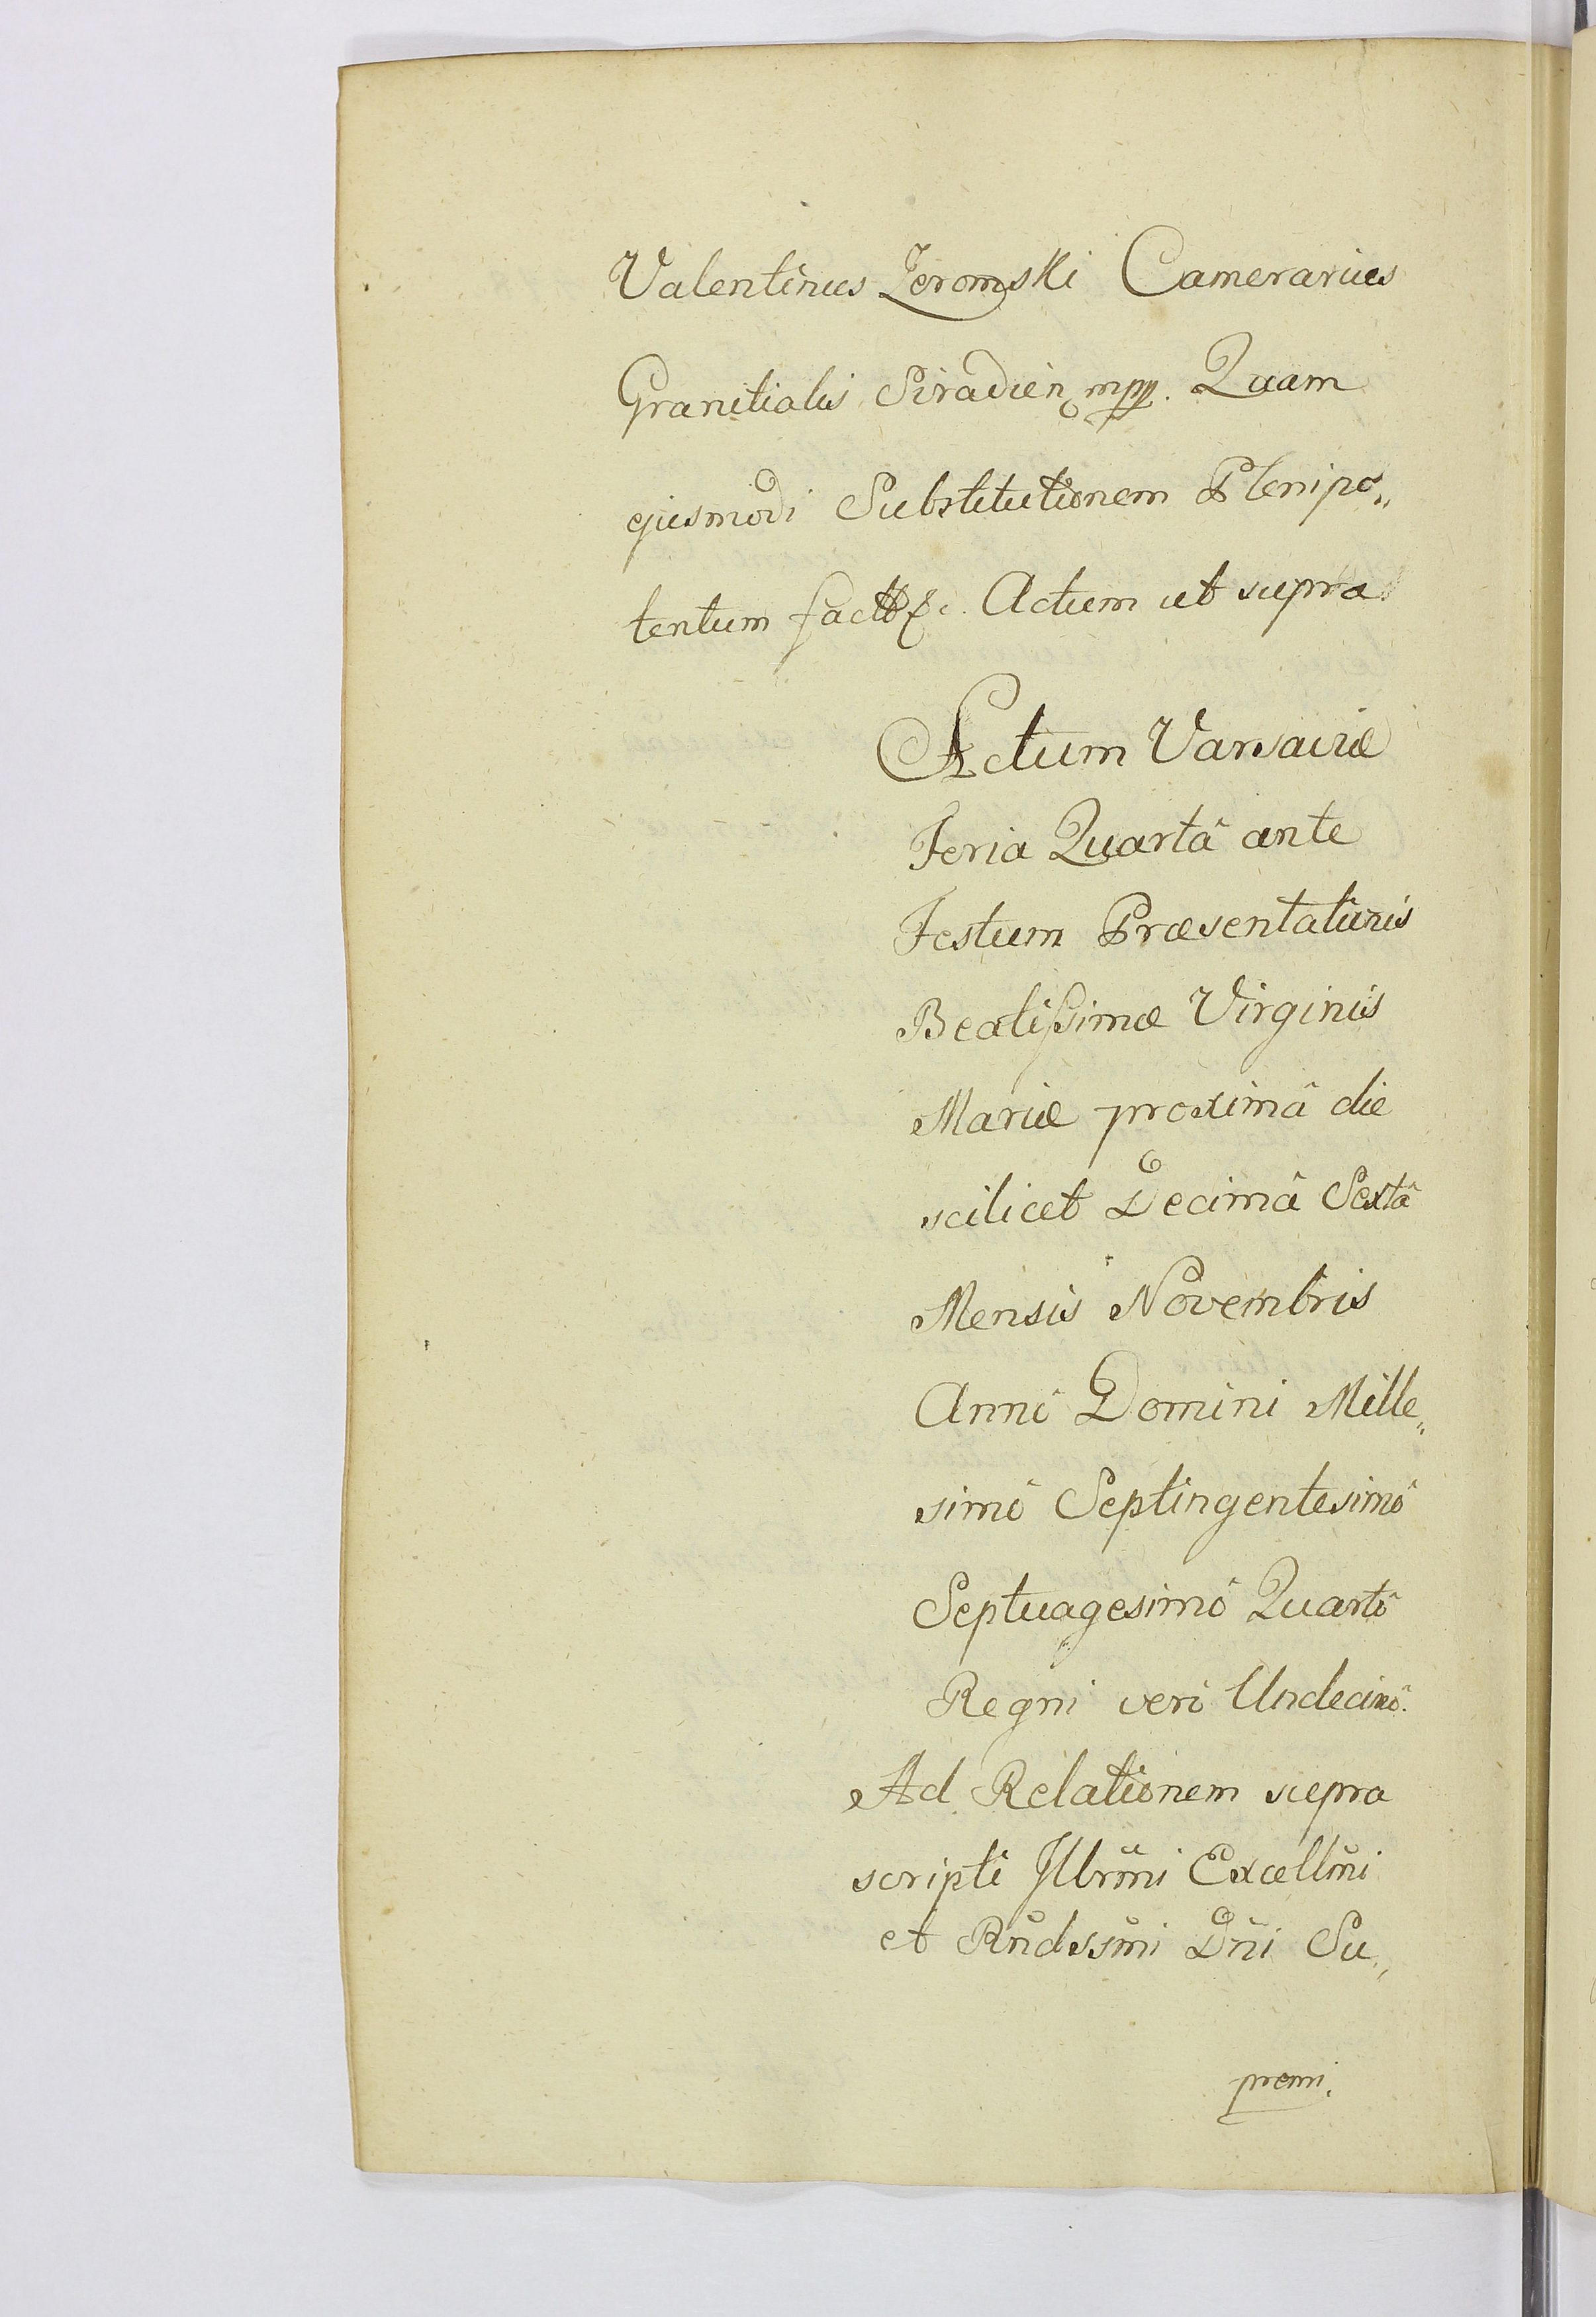 Valentinus Zeromski Camerarius
Granitialis Siradien mpp. Quam
ejusmodi Substitutionem Plenipo„
tentum Actum ut supra
Actum Varsaviæ
Feria Quartâ ante
Festum Præsentationis
Beatissimæ Virginis
Mariæ proximâ die
scilicet Decimâ Sextâ
Mensis Novembris
Annô Domini Mille„
simô Septingentesimô
Septuagesimô Quartô
Regni verô Undecimô.
Ad Relationem supra
scripti Illrmi Excellmi
et Rndssmi Dni Su„
premi.